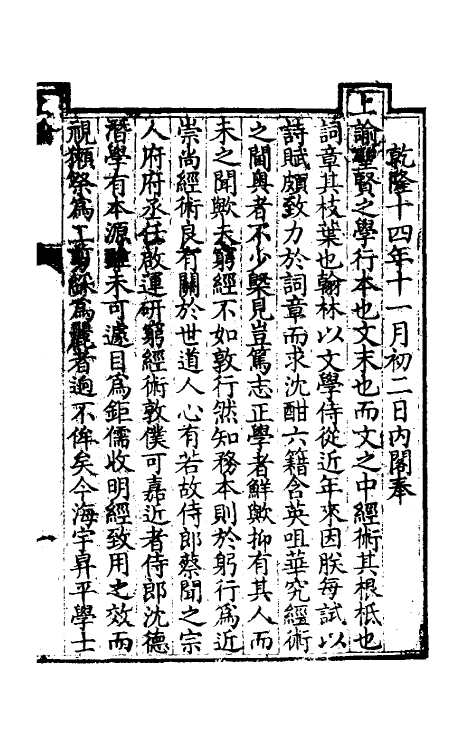 乾隆十四年十一月初二日内閣奉
上諭聖賢之學行本也文末也而文之中經術其根柢也
詞章其枝葉也翰林以文學侍從近年來因朕每試以
詩賦頗致力於詞章而求沈酣六籍含英咀華究經術
之閫奥者不少槩見豈篤志正學者鮮歟抑有其人而
未之聞歟夫窮經不如敦行然知務本則於躬行為近
崇尚經術良有關於世道人心有若故侍郎蔡聞之宗
人府府丞任啟運研窮經術敦僕可嘉近者侍郎沈德
潛學有本源雖未可遽目為鉅儒收明經致用之效而
視獺祭為工剪綵為麗者逈不侔矣今海宇昇平學士
一